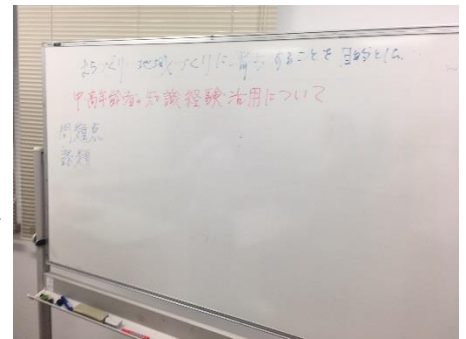 まちづくり・地域づくりに寄与することを目的とした
中高年齢者の知識経験活用について
問題点
課題